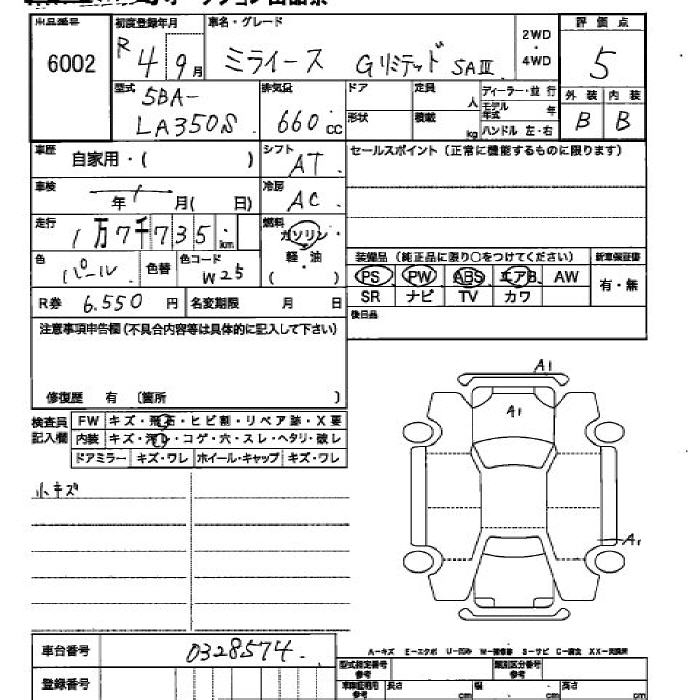 出品番号 初度登録年月 車名・グレード 2WD・4WD 評価点
6002 R4 9月 ミライース Gリミテッド SAⅢ 5
型式 5BA-LA350S 排気量 660cc ドア 定員 人 ディーラー・並行
形状 積載 kg モデル年式 年 ハンドル 左・右
外装 内装
B B
車歴 自家用・( ) シフト AT セールスポイント (正常に機能するものに限ります)
車検 年 月( 日) 冷房 AC
走行 1万7千735km 燃料 ガソリン・軽・油 ( )
色 パール 色替 色コード W25
装備品 (純正品に限り○をつけてください) 新車保証書
PS PW ABS エアB AW 有・無
SR ナビ TV カワ
R券 6,550円 名変期限 月 日
後日品
注意事項申告欄(不具合内容等は具体的に記入して下さい)
修復歴 有 〔箇所 〕
検査員記入欄 FW キズ・飛石・ヒビ割・リペア跡・X要
内装 キズ・汚レ・コゲ・穴・スレ・ヘタリ・破レ
ドアミラー キズ・ワレ ホイール・キャップ キズ・ワレ
小キズ
A1
A1
A1
A-キズ E-エクボ U-凹み W-補修跡 S-サビ C-腐食 XX-交換済
車台番号 0328574
登録番号
型式指定番号参考 類別区分番号参考
長さ cm 幅 cm 高さ cm